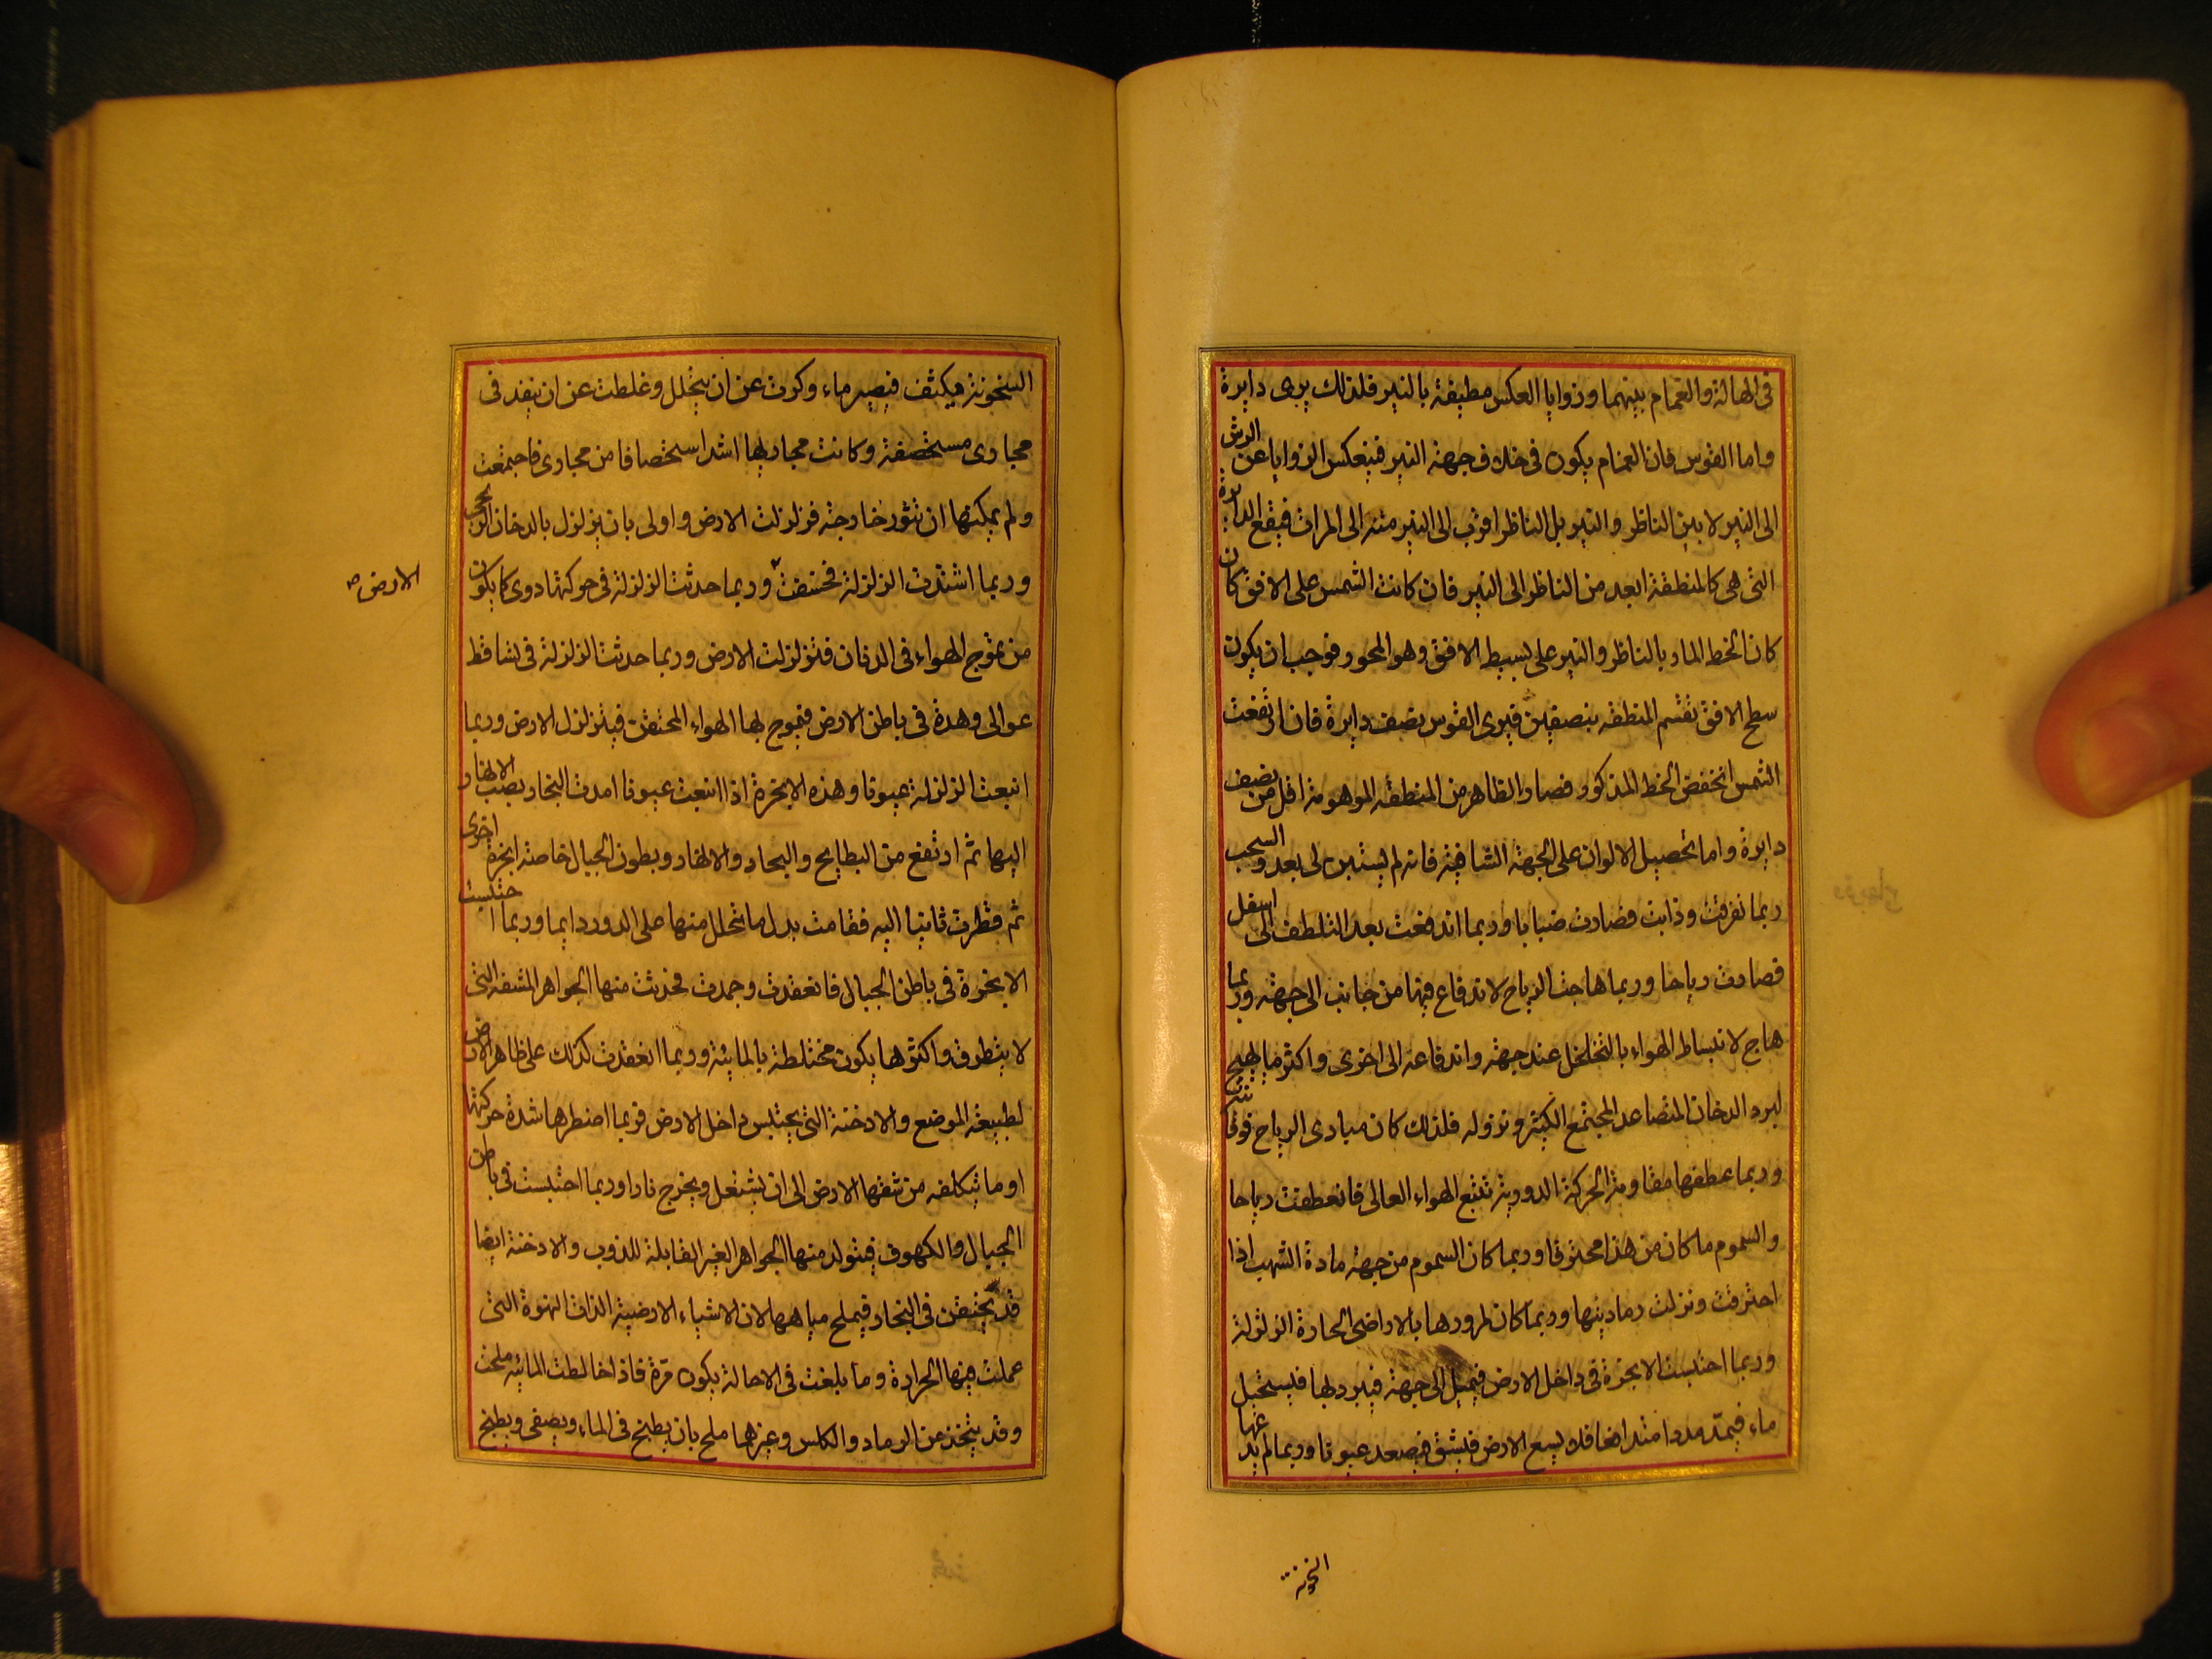 فى الهالة والغمام بينهما وزوايا العكس مطيفة بالنير فلذلك يرى دايرة
واما القوس فان الغمام يكون فى خلاف جهة النير فينعكس الزوايا عن الرش
الى النير لا بين الناظر والنير بل الناظر اقرب الى النير منه الى المراة فيقع الدايرة
التى هى كالمنطقة ابعد من الناظر الى النير فان كانت الشمس على الافق كان
كان الخط المار بالناظر والنير على بسيط الافق وهو المحور فوجب ان يكون
سطح الافق تقسم المنطقه بنصفين فيرى القوس نصف دايرة فان ارتفعت
الشمس انخفض الخط المذكور فصار الظاهر من المنطقه الموهومة اقل من نصف
دايرة واما تحصيل الالوان على الجهة الشافية فانه لم يستبن لى بعد والسحب
ربما تفرقت وذابت فصارت ضبابا وربما اندفعت بعد التلطف الى اسفل
فصارت رياحا وربما هاجت الرياح لاندفاع فيها من جانب الى جهة وربما
هاج لانبساط الهواء بالتخلخل عند جهة واندفاعه الى اخرى واكثر ما يهيج
لبرد الدخان المتصاعد المجتمع الكثير ونزوله فلذلك كان مبادى الرياح فوقانية
وربما عطفها مقاومة الحركة الدورية تتبع الهواء العالى فانعطفت رياحا
والسموم ما كان من هذا محترقا وربما كان السموم من جهة مادة الشهب اذا
احترقت ونزلت رماديتها وربما كان لمرورها بالاراضى الحارة الزلزلة
وربما احتبست الابخرة فى داخل الارض فيميل الى جهة فيبرد بها فيستحيل
ماء فيمد مددا متدافعا فلا يسع الارض فيشق فيصعد عيونا وربما لم يدعها
السخونة
السخونة يتكثف فيصير ماء وكرت عن ان يتحلل وغلظت عن ان ينفد فى
مجارى مستحصفة وكانت مجاريها اشد استحصافا من مجارى فاجتمعت
ولم يمكنها ان تثور خارجة فزلزلت الارض واولى بان يزلزل بالدخان الريحى
وربما اشتدت الزلزلة فخسفت وربما حدثت الزلزلة فى حركتها دوى كما يكون
الارض صح
من تموج الهواء فى الدنان فتزلزلت الارض وربما حدثت الزلزلة فى تساقط
عوالى وهدة فى باطن الارض فيموج بها الهواء المحتقن فيتزلزل الارض وربما
انبعث الزلزلة عيونا وهذه الابخرة اذا انبعثت عيونا امدت البحار بصب الانهار
اليها ثم ارتفع من البطايح والبحار والانهار وبطون الجبال خاصة ابخرة اخرى
ثم قطرت ثانيا اليه فقامت بدل ما تتحلل منها على الدور دايما وربما احتبست
الابخرة فى باطن الجبال فانعقدت وجمدت فحدثت منها الجواهر المشفه التى
لا ينطرق واكثرها يكون مختلطة بالمائية وربما انعقدت كذلك على ظاهر الارض
لطبيعة الموضع والادخنة التى يحتبس داخل الارض فربما اضطرها شدة حركتها
او ما يتكلفه من شقها الارض الى ان يشتعل ويخرج نارا وربما احتبست فى باطن
الجبال والكهوف فيتولد منها الجواهر الغير القابلة للذوب والادخنة ايضا
قد يحتقن فى البحار فيملح مياهها لان الاشياء الارضية الذات الهوة التى
عملت فيها الحرارة وما بلغت فى الاحالة يكون مرة فاذا خالطت المائية ملحت
وقد يتخذ من الرماد والكلس وغيرهما ملح بان يطبخ فى الماء ويصفى ويطبخ